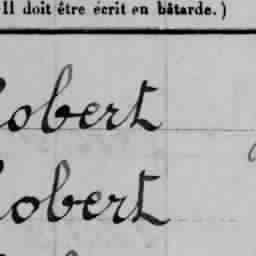 Il doit être écrit en bâtarde. )
Robert
Robert